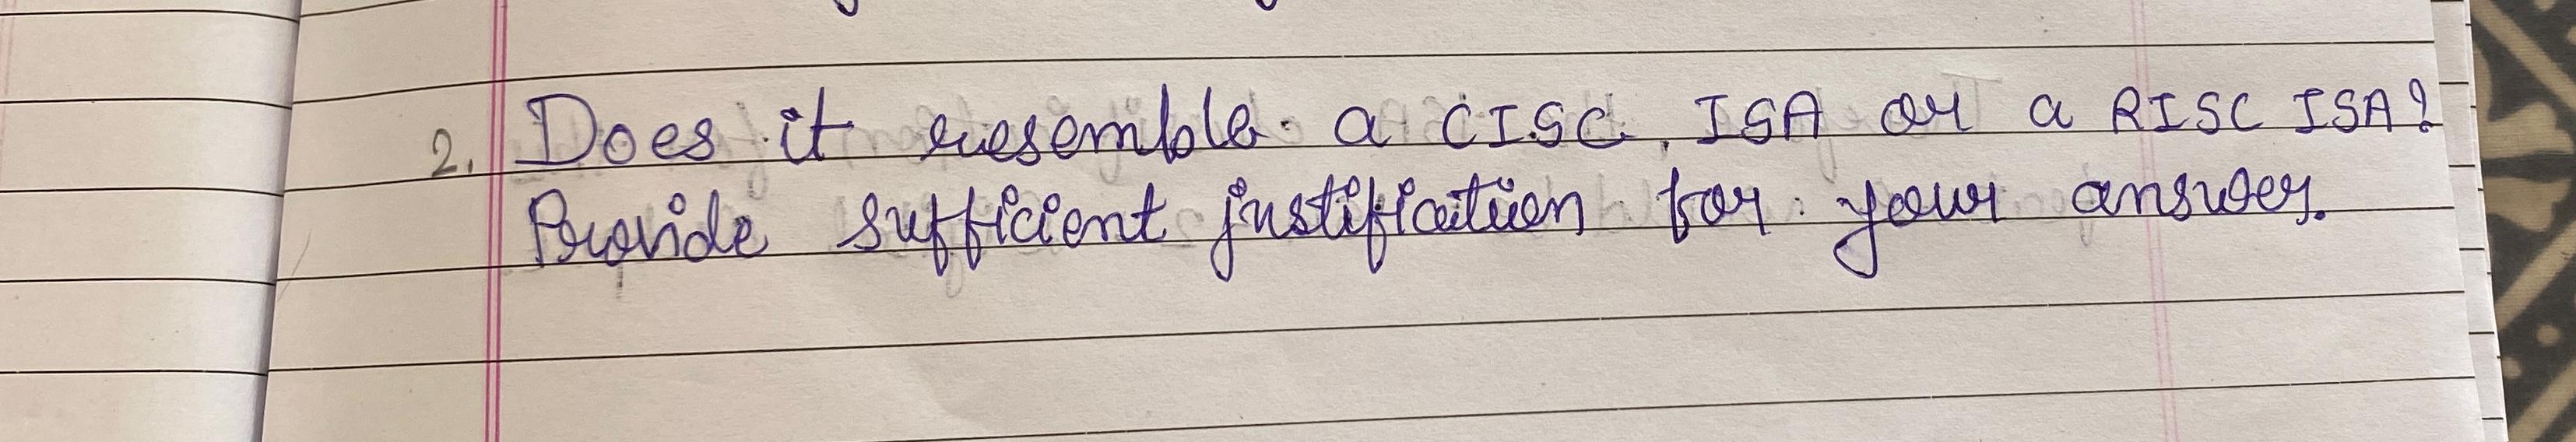 2. Does it resemble a CISC ISA or a RISC ISA?
Provide sufficient justification for your answer.